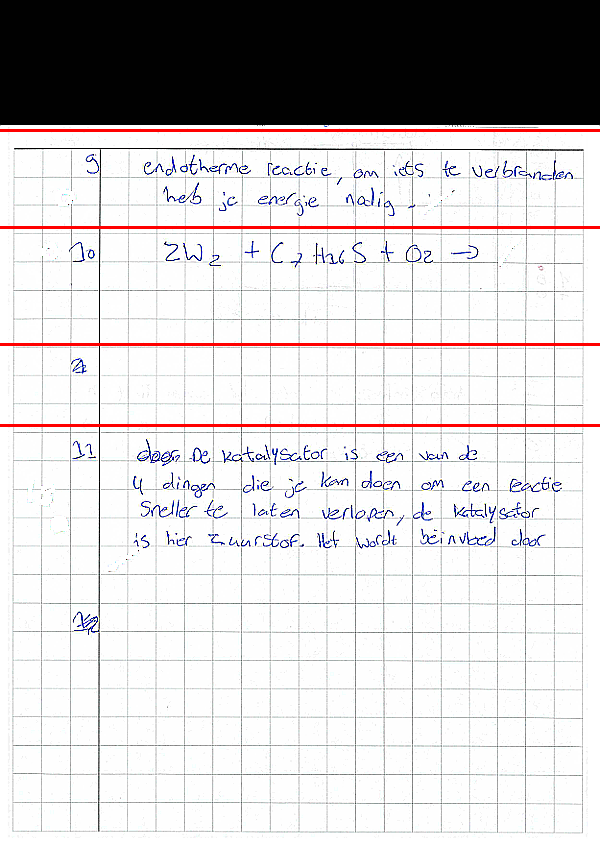 9 endotherme reactie, om iets te verbranden
heb je energie nodig.
10 ZW2 + C7H16S + O2 →
11 De katalysator is een van de
4 dingen die je kan doen om een reactie
sneller te laten verlopen, de katalysator
is hier zuurstof. Het wordt beinvloed door